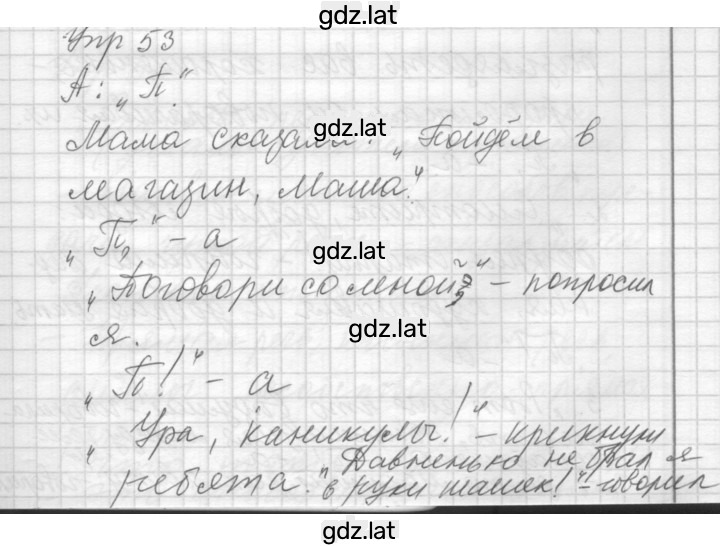 gdz.lat
Упр 53
А: „П."
gdz.lat
Мама сказала: „Пойдём в
магазин, Маша."
„П," – а
gdz.lat
„Поговори со мной," – попросил
я.
gdz.lat
„П!" – а
„Ура, каникулы!" – крикнули
ребята. „Давненько не брал я
в руки шашек!" – говорил
gdz.lat